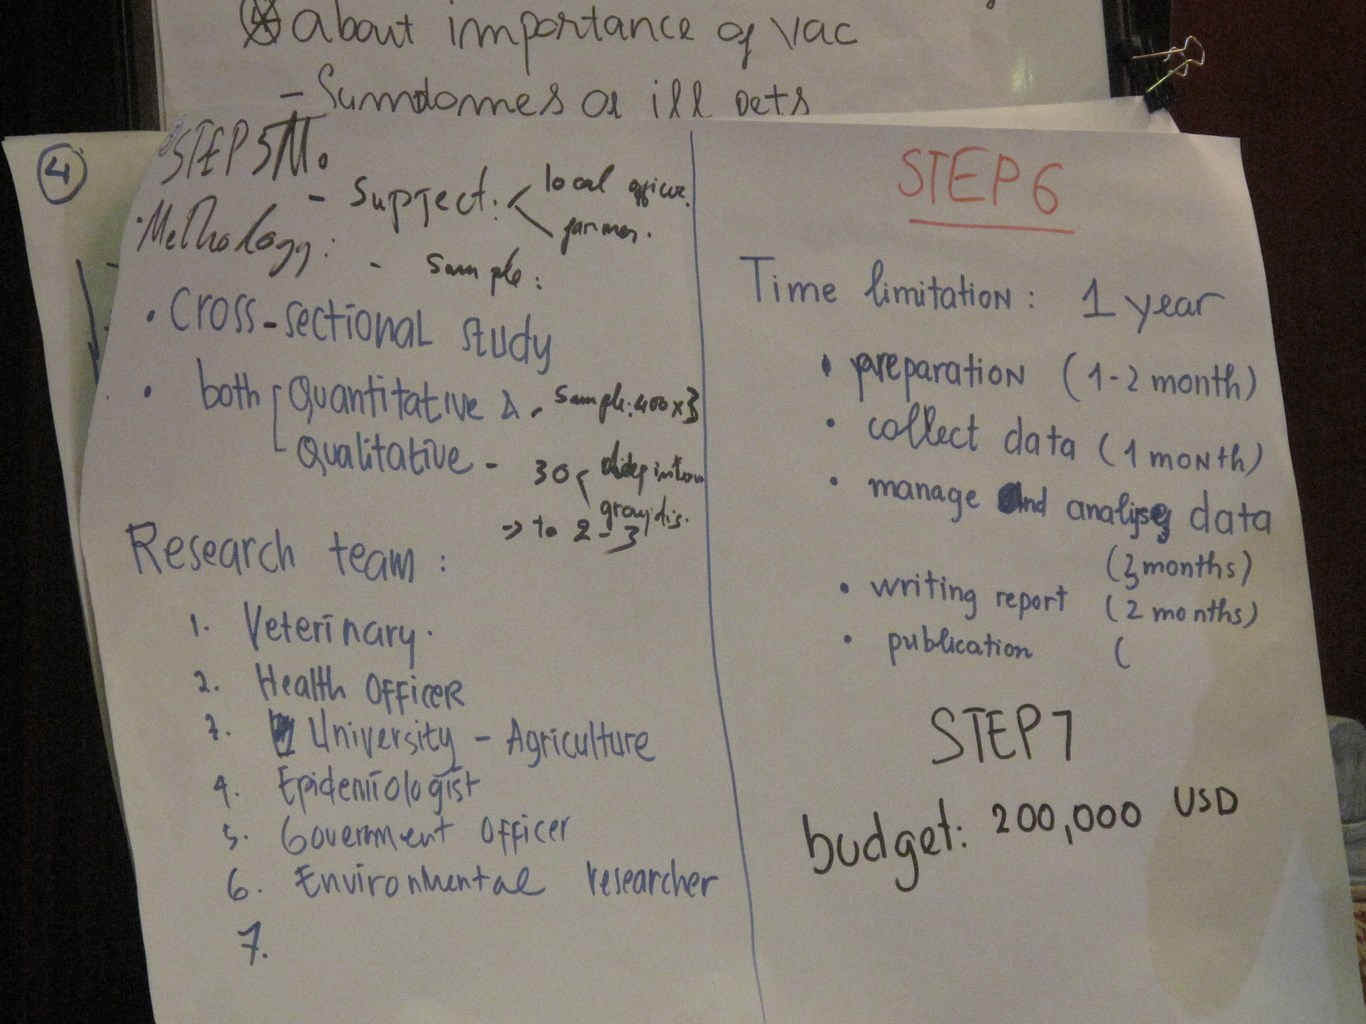 about importance of vac
- Sumdomes of ill pets
4
STEP 5
- Supject: local
farmer.
Methology:
- Sample:
• Cross-sectional study
• both Quantitative & . Sample: 400 x 3
Qualitative - 30
-> to 2-3
Research team :
1. Veterinary.
2. Health OFFiceR
3. University - Agriculture
4. Epidemiologist
5. Government Officer
6. Environmental researcher
7.
STEP 6
Time limitation : 1 year
• preparation (1-2 month)
• collect data (1 month)
• manage and analyse data
(3 months)
• writing report (2 months)
• publication (
STEP 7
budget: 200,000 USD